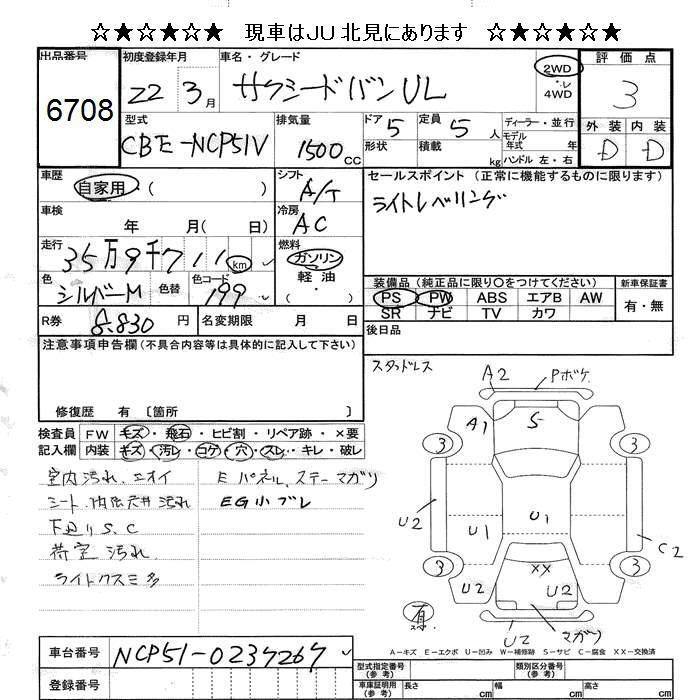 ☆★☆★☆★ 現車はJU北見にあります ☆★☆★☆★
出品番号 初度登録年月 車名・グレード 2WD 評価点
6708 22 3月 サクシードバン UL 4WD 3
型式 排気量 ドア 定員 ディーラー・並行 外装 内装
CBE-NCP51V 1500cc 5 5人 モデル年式 年 D D
形状 積載 kg ハンドル 左・右
車歴 シフト セールスポイント(正常に機能するものに限ります)
自家用・( ) A/T ライトレベリング
車検 年 月( 日) 冷房 AC
走行 35万9千711km 燃料 ガソリン 軽油
色 シルバーM 色替 色コード 199 ( )
装備品(純正品に限り〇をつけてください) 新車保証書
PS PW ABS エアB AW 有・無
SR ナビ TV カワ
R券 8.830円 名変期限 月 日 後日品
注意事項申告欄(不具合内容等は具体的に記入して下さい)
スタッドレス
修復歴 有〔箇所 〕
検査員 FW キズ・飛石・ヒビ割・リペア跡・×要
記入欄 内装 キズ・汚レ・コゲ・穴・スレ・キレ・破レ
室内汚れ、ニオイ
シート、内張天井汚れ
下廻りS.C
荷室汚れ
ライトクスミ多
Eパネル、ステーマガリ
EG小ブレ
A2 Pボケ
A1 S
3 3
U2 U1 U1 C2
3 XX 3
U2 U2
有 U2 マガリ
A-キズ E-エクボ U-凹み W-補修跡 S-サビ C-腐食 XX-交換済
車台番号 NCP51-0237267
登録番号
型式指定番号(参考) 類別区分番号(参考)
車庫証明用(参考) 長さ cm 幅 cm 高さ cm